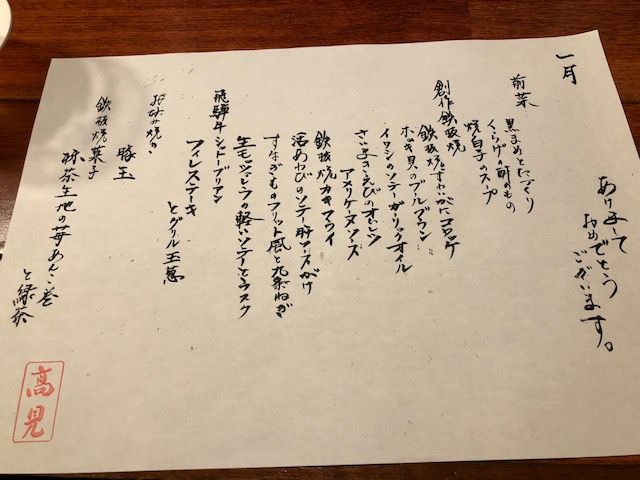 一月
あけまして
おめでとう
ございます。
前菜
黒まめとにこごり
くらげの酢のもの
焼白子のスープ
創作鉄板焼
鉄板焼ずわいがにコロッケ
ホッキ貝のブールブラン
イワシのソテーガーリックオイル
さいまきえびのオレンジ
アメリケーヌソース
鉄板焼カキフライ
活あわびのソテー肝ソースがけ
すなぎものフリット風と九条ねぎ
生モッツァレラの軽いソテーとラスク
飛騨牛シャトーブリアン
フィレステーキ
とグリル玉葱
お好み焼き
豚玉
鉄板焼菓子
抹茶生地の苺あんこ巻
と緑茶
高見